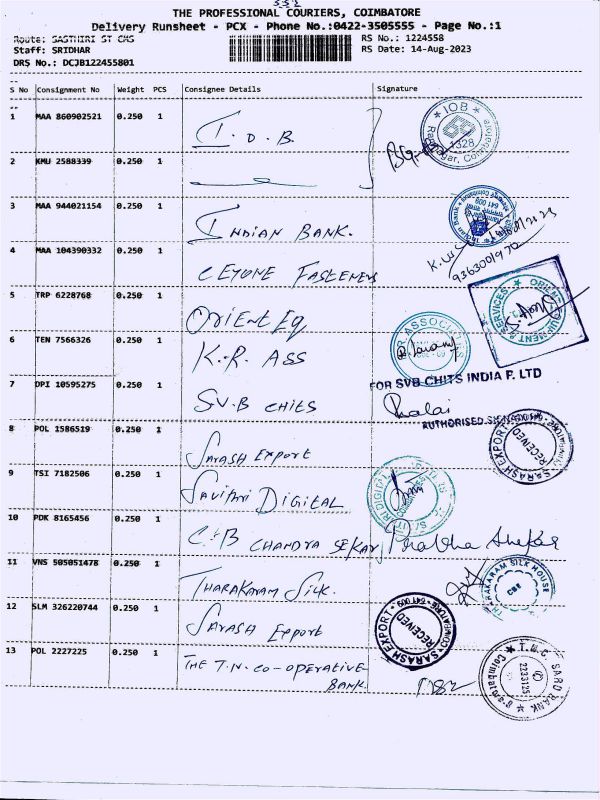 THE PROFESSIONAL COURIERS, COIMBATORE
Delivery Runsheet - PCX - Phone No.:0422-3505555 - Page No.:1
Route: SASTHIRI ST CMS
RS No.: 1224558
Staff: SRIDHAR
RS Date: 14-Aug-2023
DRS No.: DCJB122455801
S No Consignment No Weight PCS Consignee Details Signature
1 MAA 860902521 0.250 1 I.O.B.
IOB
1328
2 KMU 2588339 0.250 1
3 MAA 944021154 0.250 1 INDIAN BANK.
Indian Bank
641 009
4 MAA 104390332 0.250 1 CEYONE FASTENERS
9363001970
5 TRP 6228768 0.250 1 ORIENT EQ
6 TEN 7566326 0.250 1 K.R. ASS
7 DPI 10595275 0.250 1 S.V.B CHITS
FOR SVB CHITS INDIA P. LTD
AUTHORISED
8 POL 1586519 0.250 1 SARASH EXPORT
SARASH EXPORT
RECEIVED
9 TSI 7182506 0.250 1 SAVITHRI DIGITAL
10 PDK 8165456 0.250 1 CHANDRA SEKAR
11 VNS 505051478 0.250 1 THARAKARAM SILK.
THARAKARAM SILK HOUSE
CBE
12 SLM 326220744 0.250 1 SARASH EXPORT
SARASH EXPORT
COIMBATORE-641 009
RECEIVED
13 POL 2227225 0.250 1 THE T.N. CO-OPERATIVE
BANK
2233125